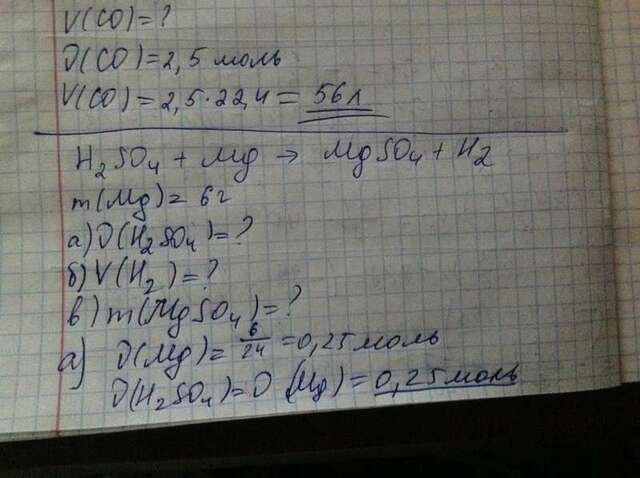 V(CO)=?
ν(CO)=2,5 моль
V(CO)=2,5·22,4=56л
H₂SO₄+Mg→MgSO₄+H₂
m(Mg)=6г
а)ν(H₂SO₄)=?
б)V(H₂)=?
в)m(MgSO₄)=?
а) ν(Mg)=6/24=0,25моль
ν(H₂SO₄)=ν(Mg)=0,25моль